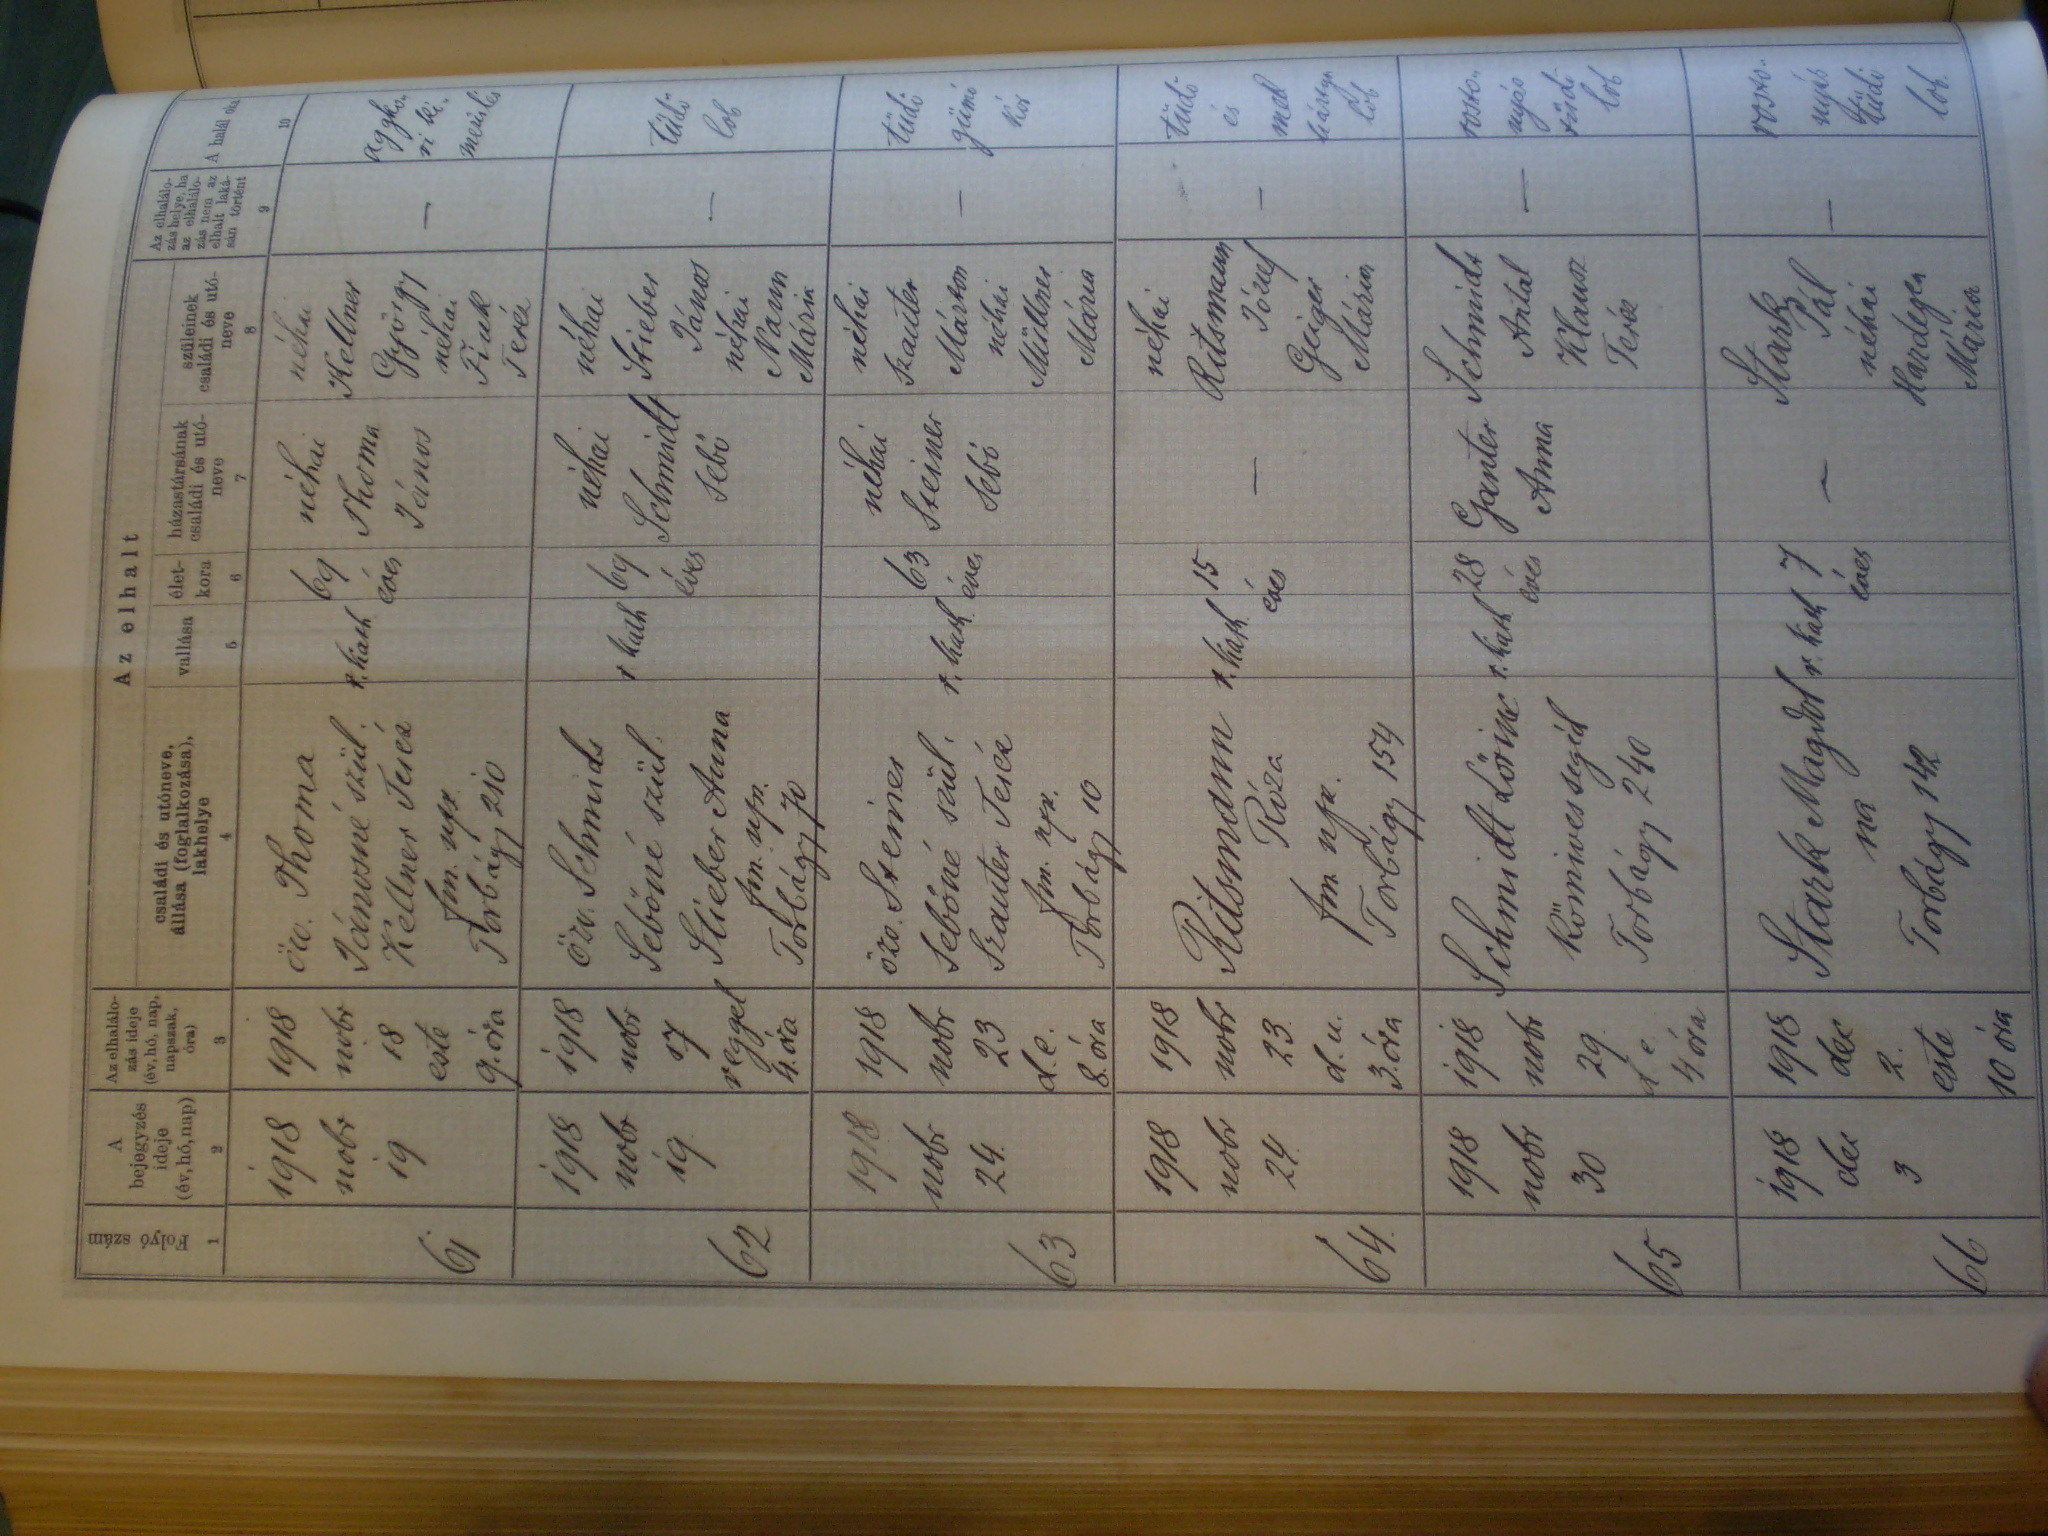 Az elhalt
Folyó szám
A bejegyzés ideje (év, hó, nap)
Az elhalálozás ideje (év, hó, nap, napszak, óra)
családi és utóneve, állása (foglalkozása), lakhelye
vallása
életkora
házastársának családi és utóneve
szüleinek családi és utóneve
Az elhalálozás helye, ha az elhalálozás nem az elhalt lakásán történt
A halál oka
1 2 3 4 5 6 7 8 9 10
61
1918
nobr
19
1918
nobr
18
este
9. óra
özv. Thoma
Jánosné szül.
Kellner Teréz
fm. nsz.
Torbágy 210
r. kath
69
éves
néhai
Thoma
János
néhai
Kellner
György
néhai
Fink
Teréz
—
aggko-
ri ki-
merülés
62
1918
nobr
19
1918
nobr
17
reggel
4. óra
özv. Schmids
Sebőné szül.
Stieber Anna
fm. nsz.
Torbágy 70
r kath
69
éves
néhai
Schmidt
Sebő
néhai
Stieber
János
néhai
Nann
Mária
—
tüdő
lob
63
1918
nobr
24.
1918
nobr
23
d.e.
8. óra
özv. Steiner
Sebőné szül.
Szauter Teréz
fm. nsz.
Torbágy 10
r. kath
63
éves
néhai
Steiner
Sebő
néhai
Szauter
Márton
néhai
Müllner
Mária
—
tüdő
gümő
kór
64.
1918
nobr
24.
1918
nobr
23.
d.u.
3. óra
Ritsmann
Róza
fm. nsz.
Torbágy 154
r. kath
15
éves
—
néhai
Ritsmann
József
Geiger
Mária
—
tüdő
és
mell
hártya
lob
65
1918
nobr
30
1918
nobr
29.
d. e.
4 óra
Schmidt Lőrinc
Kőmives segéd
Torbágy 240
r. kath
28
éves
Ganter
Anna
Schmidt
Antal
Klausz
Teréz
—
roszo-
nyás
tüdő
lob
66
1918
dec
3
1918
dec
2.
este
10 óra
Stark Magdol
na
Torbágy 142
r. kath
7
éves
—
Stark
Pál
néhai
Hardegen
Mária
—
tüdő
lob.